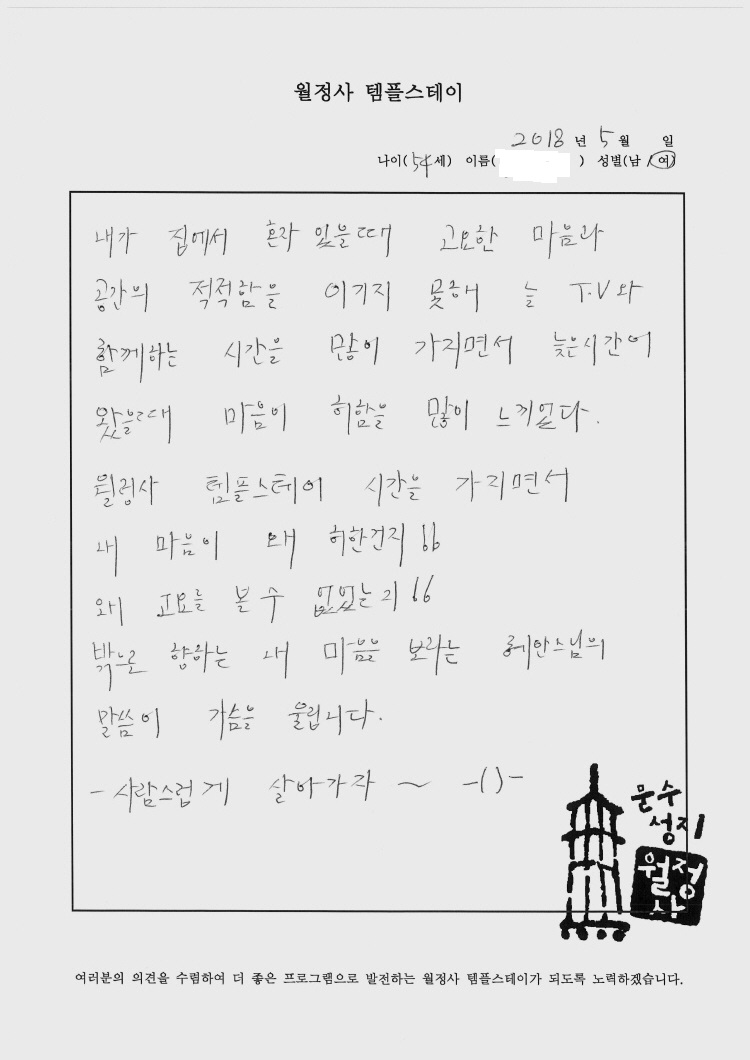 월정사 템플스테이
2018 년 5 월 일
나이(54세) 이름( ) 성별(남 / 여)
내가 집에서 혼자 있을때 고요한 마음과
공간의 적적함을 이기지 못해 늘 T.V와
함께하는 시간을 많이 가지면서 늦은시간이
왔을때 마음이 허함을 많이 느끼었다.
월정사 템플스테이 시간을 가지면서
내 마음이 왜 허한건지
왜 고요를 볼 수 없었는지
밖으로 향하는 내 마음을 보라는 스님의
말씀이 가슴을 울립니다.
- 사람스럽게 살아가자 ~ -( )-
문수
성지
월정
사
여러분의 의견을 수렴하여 더 좋은 프로그램으로 발전하는 월정사 템플스테이가 되도록 노력하겠습니다.